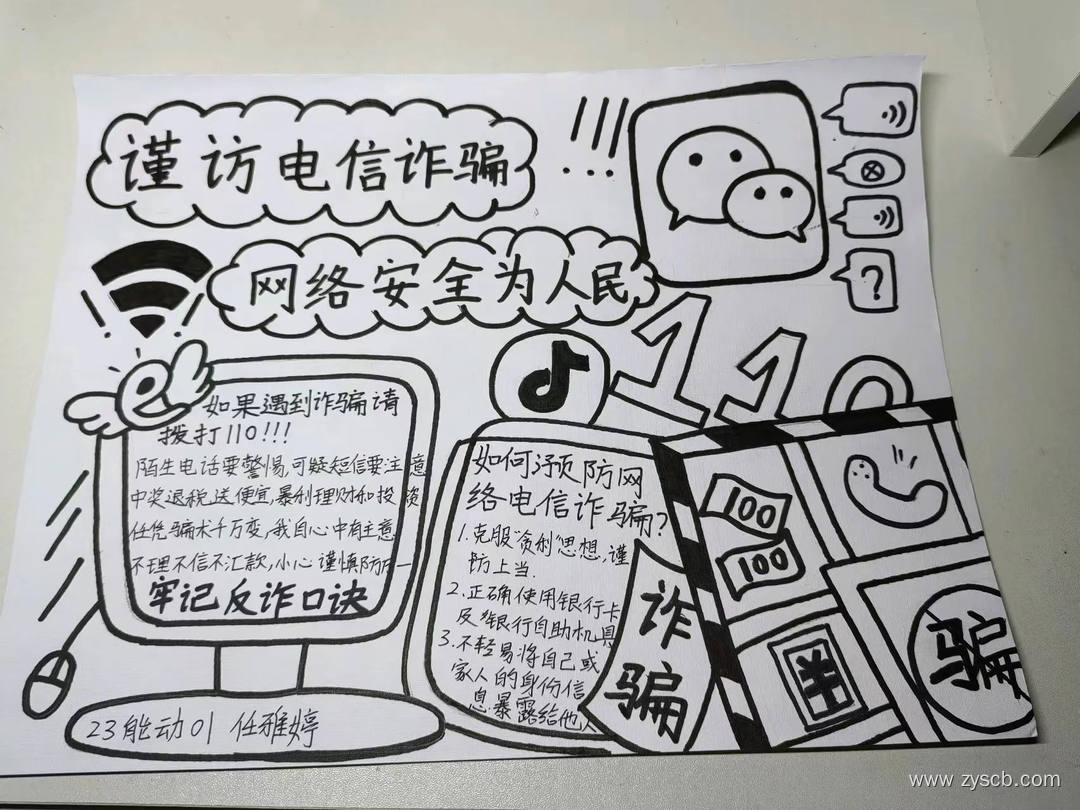 谨访电信诈骗
!!!
网络安全为人民
?
110
e
如果遇到诈骗请
拨打110!!!
陌生电话要警惕,可疑短信要注意
中奖退税送便宜,暴利理财和投资
任凭骗术千万变,我自心中有主意
不理不信不汇款,小心谨慎防万一
牢记反诈口诀
23能动01 任雅婷
如何预防网
络电信诈骗?
1.克服“贪利”思想,谨
防上当.
2.正确使用银行卡
及银行自助机具
3.不轻易将自己或
家人的身份信
息暴露给他人
诈
骗
100
100
骗
www.zyscb.com